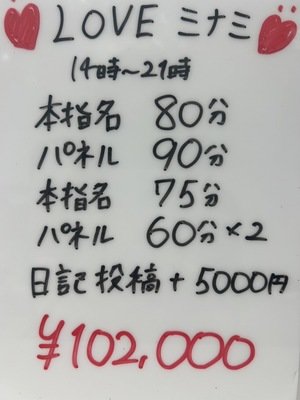 LOVE ミナミ
14時〜21時
本指名 80分
パネル 90分
本指名 75分
パネル 60分×2
日記投稿+5000円
¥102,000